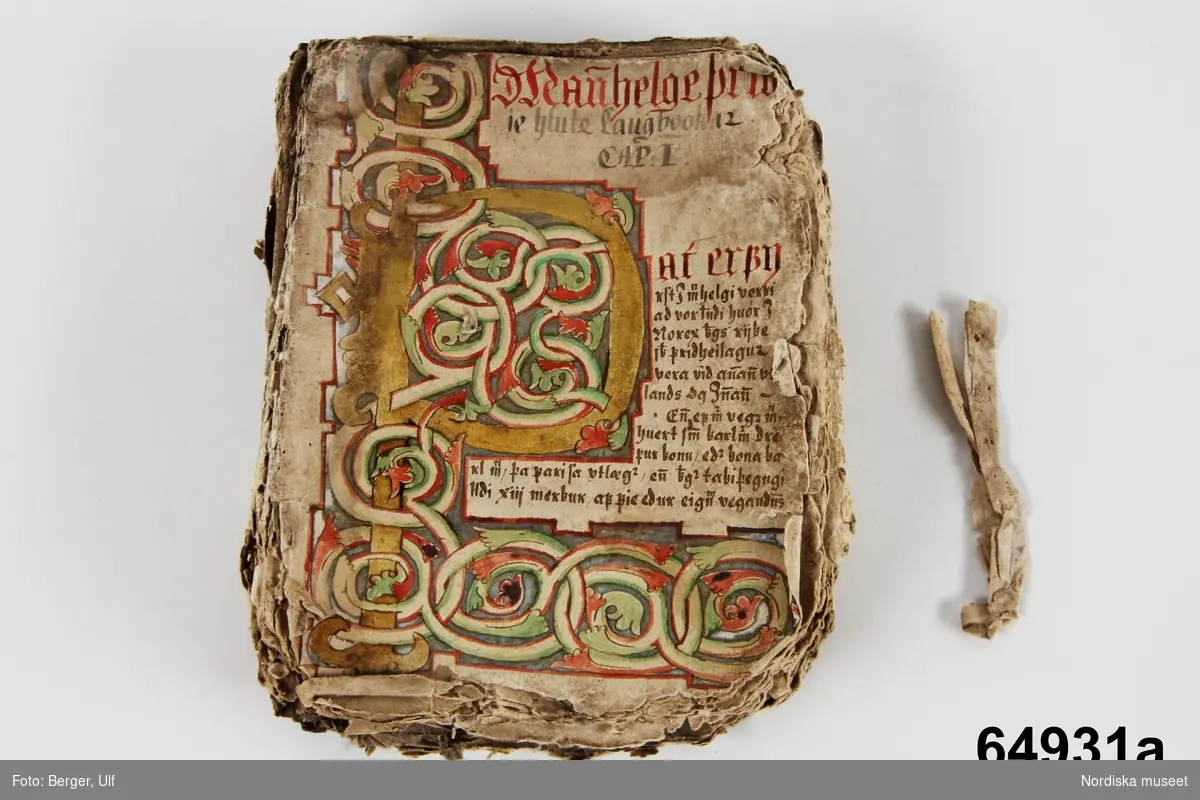 Mañhelge þrid
ie hlute laugbookar
CAP. I
Þ at er þy
rst J m̄helgi vorri
ad vor lṁdi huor J
Norex k̄gs rijke
sk̄ fridheilagur
vera vid añañ
lands og Jñañ
Eñ ef m̄ vegr m̄
huert sm̄ karlm̄ dre
pur konu, edr kona ka
rl m̄, þa fari sa vtlægr, eñ k̄gr taki þegngi
lldi xiii merkur, af fie edur eigñ vegandās
64931a
Foto: Berger, Ulf
Nordiska museet